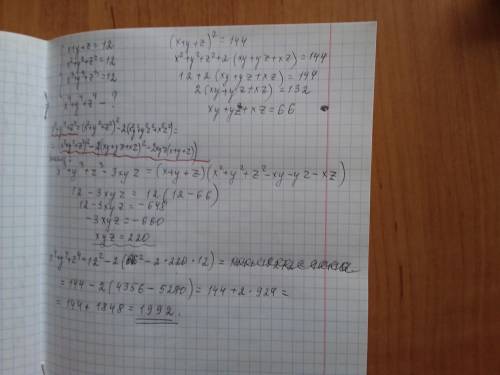 x+y+z=12
x²+y²+z²=12
x³+y³+z³=12
x⁴+y⁴+z⁴ - ?
(x+y+z)²=144
x²+y²+z²+2(xy+yz+xz)=144
12+2(xy+yz+xz)=144
2(xy+yz+xz)=132
xy+yz+xz=66
x⁴+y⁴+z⁴=(x²+y²+z²)²-2(x²y²+y²z²+x²z²)=
=(x²+y²+z²)²-2((xy+yz+xz)²-2xyz(x+y+z))
x³+y³+z³-3xyz=(x+y+z)(x²+y²+z²-xy-yz-xz)
12-3xyz=12(12-66)
12-3xyz=-648
-3xyz=-660
xyz=220
x⁴+y⁴+z⁴=12²-2(66²-2·220·12)=
=144-2(4356-5280)=144+2·924=
=144+1848=1992.